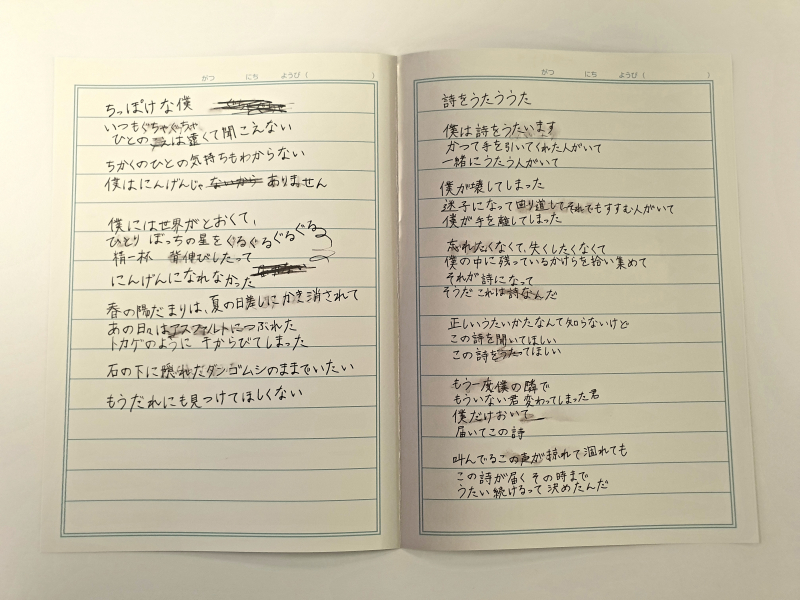 がつ にち ようび ( )
ちっぽけな僕
いつもぐちゃぐちゃ
ひとの声は遠くて聞こえない
ちかくのひとの気持ちもわからない
僕はにんげんじゃ ないから ありません
僕には世界がとおくて、
ひとり ぼっちの星をぐるぐるぐるぐる
精一杯 背伸びしたって
にんげんになれなかった
春の陽だまりは、夏の日差しにかき消されて
あの日々はアスファルトにつぶれた
トカゲのように 干からびてしまった
石の下に隠れたダンゴムシのままでいたい
もうだれにも見つけてほしくない
がつ にち ようび ( )
詩をうたううた
僕は詩をうたいます
かつて手を引いてくれた人がいて
一緒にうたう人がいて
僕が壊してしまった
迷子になって回り道してそれでもすすむ人がいて
僕が手を離してしまった
忘れたくなくて、失くしたくなくて
僕の中に残っているかけらを拾い集めて
それが詩になって
そうだ これは詩なんだ
正しいうたいかたなんて知らないけど
この詩を聞いてほしい
この詩をうたってほしい
もう一度僕の隣で
もういない君 変わってしまった君
僕だけおいて
届いてこの詩
叫んでるこの声が掠れて涸れても
この詩が届く その時まで
うたい続けるって 決めたんだ